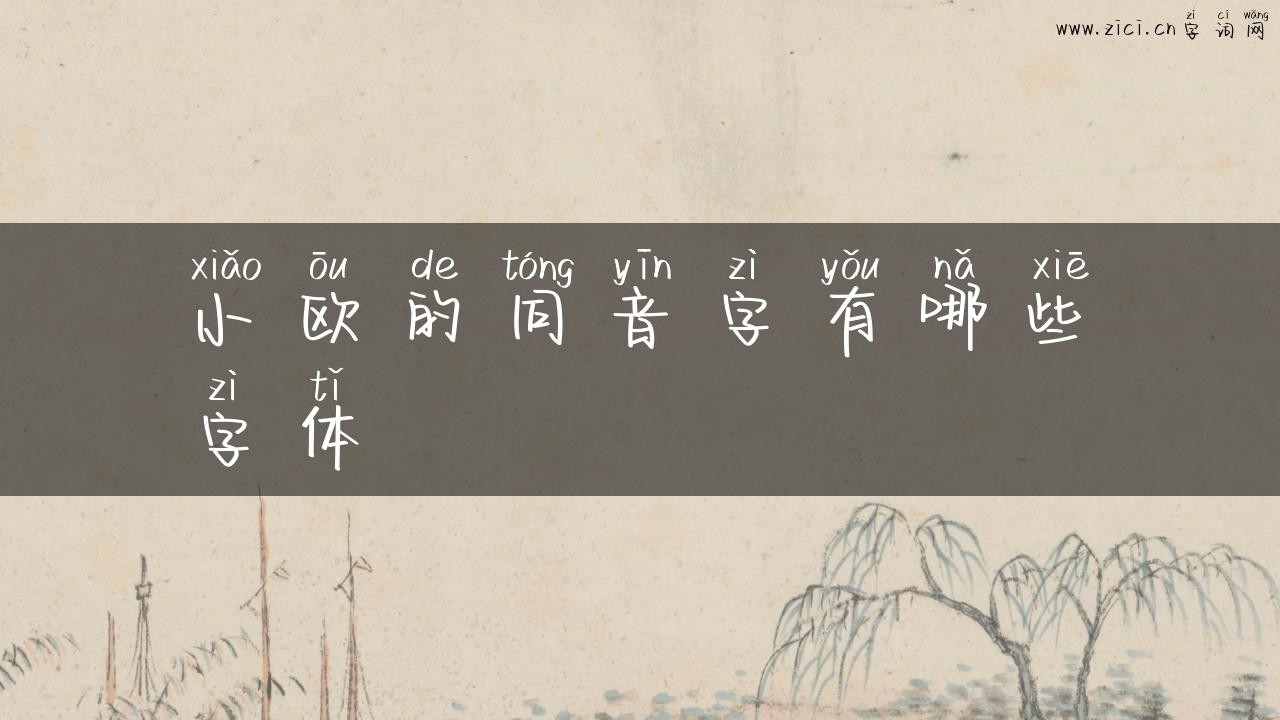 zì cí wǎng
www.zici.cn字词网
xiǎo ōu de tóng yīn zì yǒu nǎ xiē
小欧的同音字有哪些
zì tǐ
字体